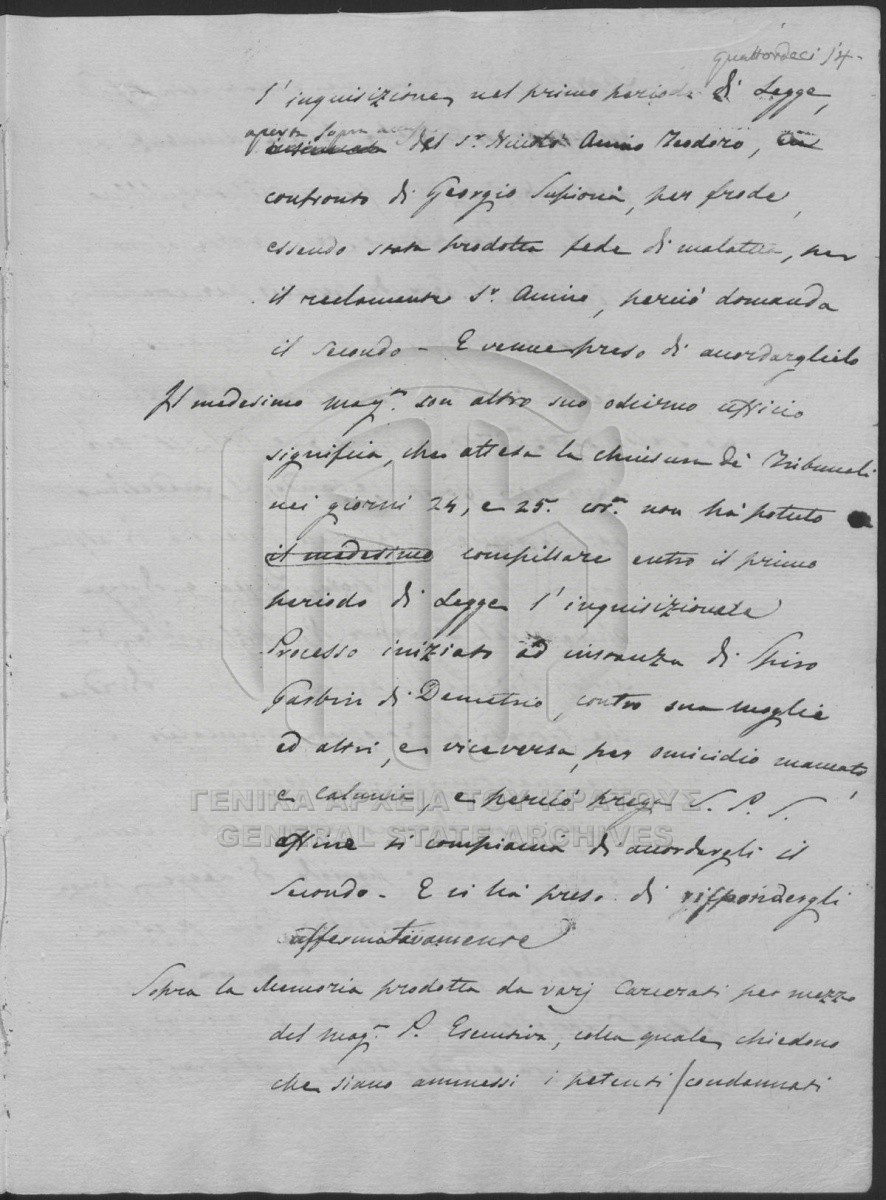 quattordeci 14.
l'inquisizione, nel primo periodo di Legge,
aperta sopra
del Sr. Niccolò Amino Teodoro, in
confronto di Georgio Supionà, per frode,
essendo stata prodotta fede di malattia, per
il reclamente Sr. Amino, perciò domanda
il secondo - E venne preso di accordarglielo
Il medesimo magn. con altro suo odierno ufficio
significa, che attesa la chiusura de' Tribunali
nei giorni 24, e 25. corn. non ha potuto
il medesimo compillare entro il primo
periodo di Legge l'inquisizionale
Processo iniziato ad instanza di Spiro
Gasbin di Demetrio, contro sua moglie
ed altri, e viceversa, per omicidio mancato,
e calunia, e perciò prega S. P. S.
affine si compiacia di accordargli il
secondo - E si ha preso di rispondergli
affermativamente
Sopra la Memoria prodotta da varj Carcerati per mezzo
del magn. P. Esecutiva, colla quale, chiedono
che siano ammessi i petenti / condannati
ΓΕΝΙΚΑ ΑΡΧΕΙΑ ΤΟΥ ΚΡΑΤΟΥΣ
GENERAL STATE ARCHIVES